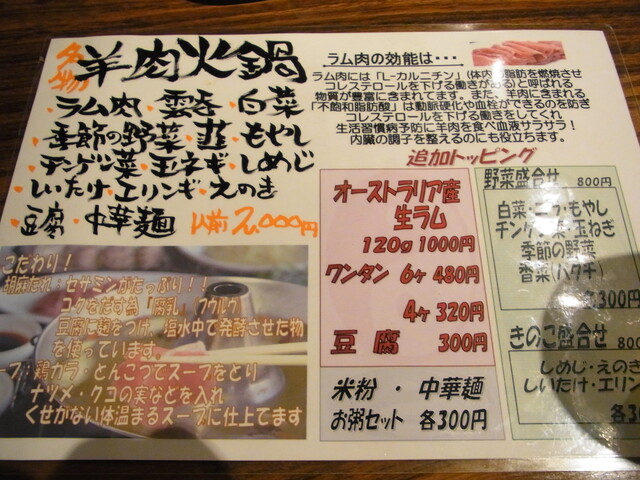 名物 羊肉火鍋
ラム肉・雲呑・白菜
・季節の野菜・韮・もやし
・チンゲン菜・玉ネギ・しめじ
・しいたけ・エリンギ・えのき
・豆腐・中華麺 1人前2,000円
こだわり!
胡麻だれ・セサミンがたっぷり!!
コクをだす為「腐乳」フウルウ
豆腐に麹をつけ、塩水中で発酵させた物
を使っています
ープ:鶏ガラ・とんこつてスープをとり
ナツメ・クコの実などを入れ
くせがない体温まるスープに仕上てます
ラム肉の効能は・・・
ラム肉には「L-カルニチン」(体内の脂肪を燃焼させ
コレステロールを下げる働きがある)と呼ばれる
物質が豊富に含まれてます。また、羊肉に含まれる
「不飽和脂肪酸」は動脈硬化や血栓ができるのを防ぎ
コレステロールを下げる働きをしてくれ
生活習慣病予防に羊肉を食べ血液サラサラ!
内臓の調子を整えるのにも役立ちます。
追加トッピング
オーストラリア産
生ラム
120g 1000円
ワンタン 6ヶ 480円
4ヶ 320円
豆腐 300円
米粉・中華麺
お粥セット 各300円
野菜盛合せ 800円
白菜・ニラ・もやし
チンゲン菜・玉ねぎ
季節の野菜
香菜(パクチ)
各300円
きのこ盛合せ 800
しめじ・えのき
しいたけ・エリン
各3